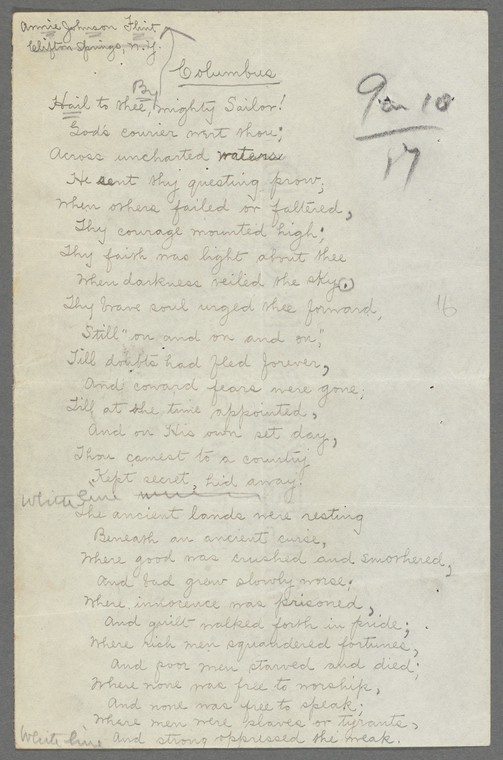 Annie Johnson Flint
Clifton Springs, N.Y.
Columbus
By
Hail to thee, mighty Sailor!
God's courier wert thou;
Across uncharted waters
He sent thy questing prow,
When others failed or faltered,
Thy courage mounted high;
Thy faith was light about thee
When darkness veiled the sky.
Thy brave soul urged thee forward,
Still "on and on and on,"
Till doubts had fled forever,
And coward fears were gone;
Till at the time appointed,
And on His own set day,
Thou camest to a country
Kept secret, hid away!
White line
The ancient lands were resting
Beneath an ancient curse,
Where good was crushed and smothered,
And bad grew slowly worse;
Where innocence was prisoned,
And guilt walked forth in pride;
Where rich men squandered fortunes,
And poor men starved and died;
Where none was free to worship,
And none was free to speak;
Where men were slaves or tyrants,
And strong oppressed the weak.
White line
9 on 10
17
16